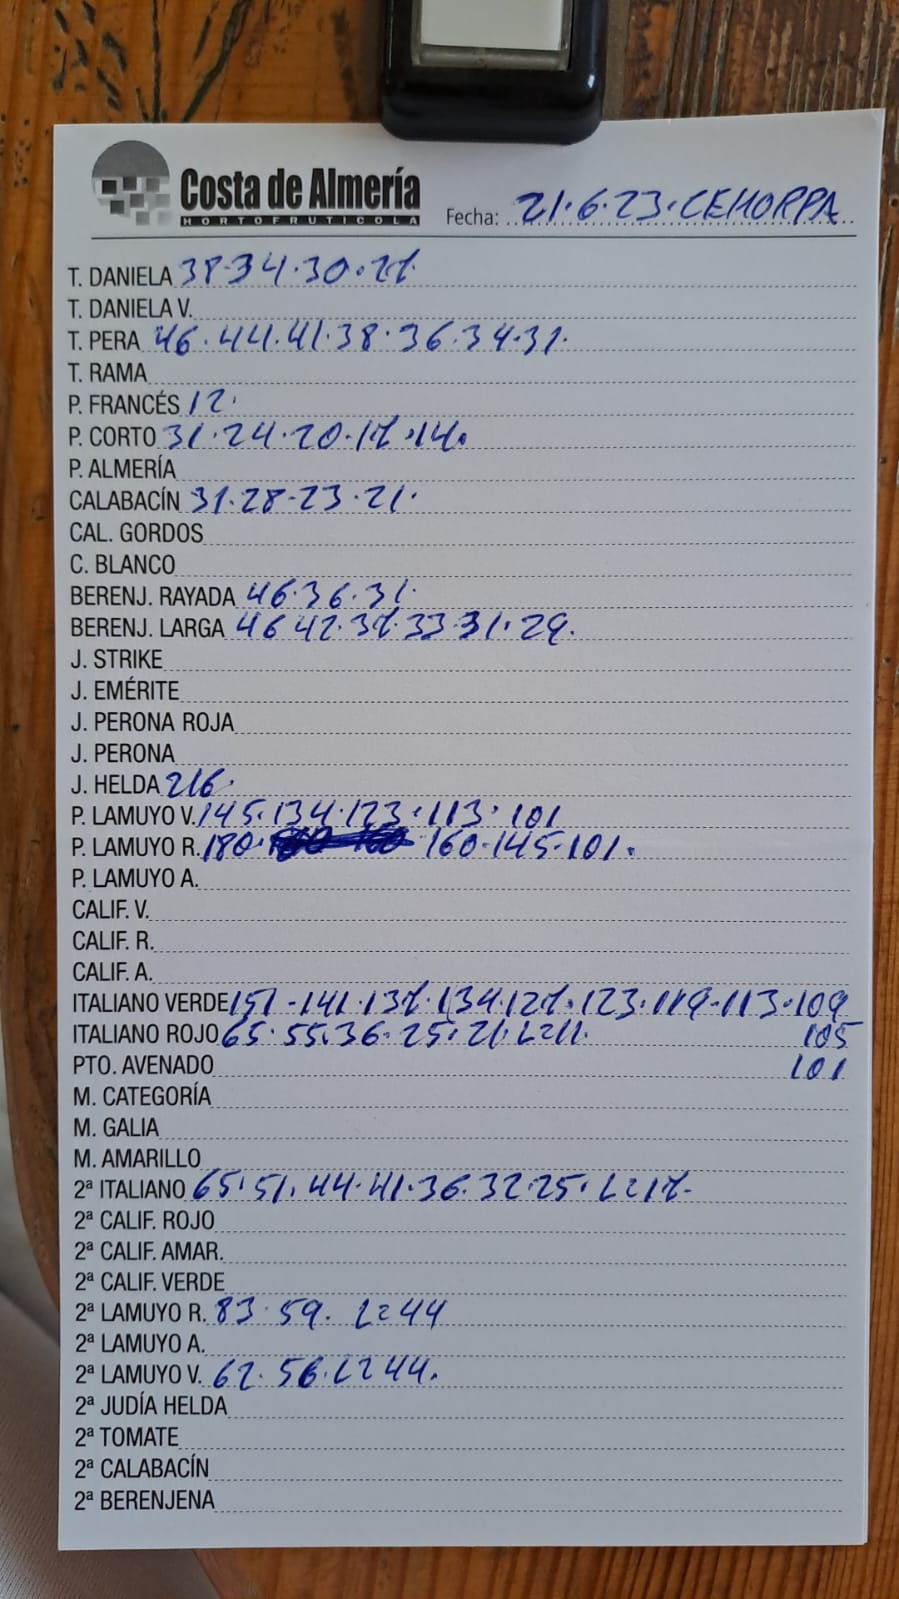 Costa de Almería
HORTOFRUTICOLA
Fecha: 21.6.23.CEHORPA
T. DANIELA 38.34.30.27
T. DANIELA V.
T. PERA 46.44.41.38.36.34.31.
T. RAMA
P. FRANCÉS 12.
P. CORTO 31.24.20.17.14.
P. ALMERÍA
CALABACÍN 31.28.23.21.
CAL. GORDOS
C. BLANCO
BERENJ. RAYADA 46.36.31.
BERENJ. LARGA 46 42.37.33.31.29.
J. STRIKE
J. EMÉRITE
J. PERONA ROJA
J. PERONA
J. HELDA 216.
P. LAMUYO V. 145.134.123.113.101
P. LAMUYO R. 180. 160.145.101.
P. LAMUYO A.
CALIF. V.
CALIF. R.
CALIF. A.
ITALIANO VERDE 151-141.137.134.127.123.119-113.109
ITALIANO ROJO 65.55.36.25.21.L=11. 105
PTO. AVENADO 101
M. CATEGORÍA
M. GALIA
M. AMARILLO
2ª ITALIANO 65.51.44.41.36.32.25.L=17.
2ª CALIF. ROJO
2ª CALIF. AMAR.
2ª CALIF. VERDE
2ª LAMUYO R. 83.59. L=44
2ª LAMUYO A.
2ª LAMUYO V. 62.56.L=44.
2ª JUDÍA HELDA
2ª TOMATE
2ª CALABACÍN
2ª BERENJENA